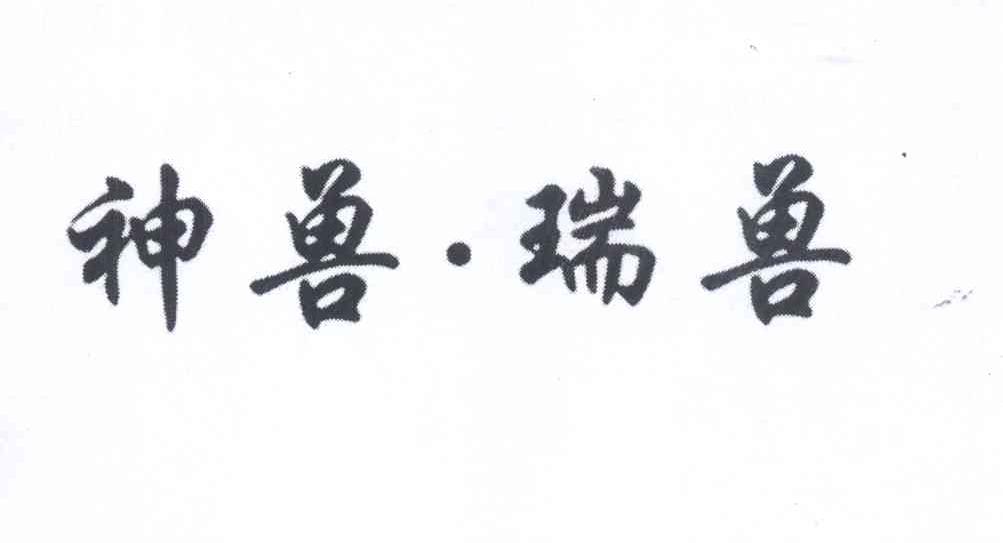 神兽·瑞兽